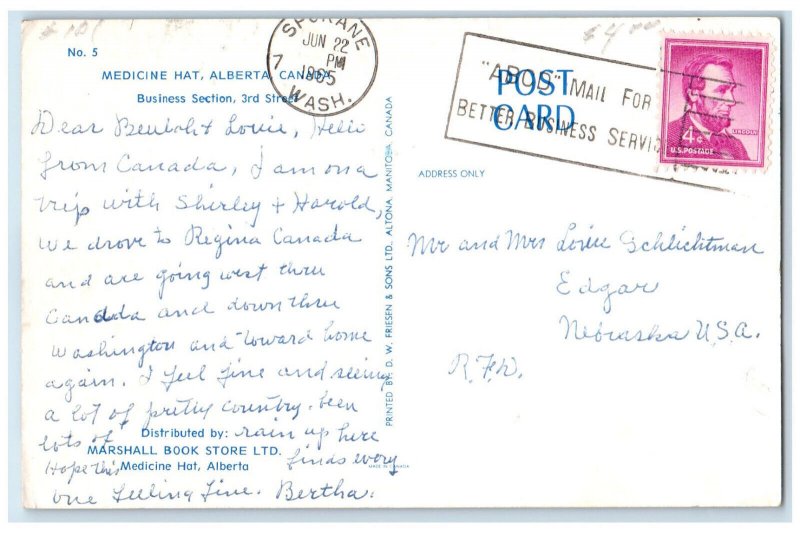 No. 5
MEDICINE HAT, ALBERTA, CANADA
Business Section, 3rd Street
Dear Beulah + Louie, Hello
from Canada, I am on a
trip with Shirley + Harold,
we drove to Regina Canada
and are going west thru
Canada and down thru
Washington and toward home
again. I feel fine and seeing
a lot of pretty country. been
lots of rain up here
Hope this finds every
one feeling fine. Bertha.
Distributed by:
MARSHALL BOOK STORE LTD.
Medicine Hat, Alberta
PRINTED BY D. W. FRIESEN & SONS LTD. ALTONA, MANITOBA, CANADA
MADE IN CANADA
SPOKANE
JUN 22
7 PM
1965
WASH.
"ABCD" MAIL FOR
BETTER BUSINESS SERVI
POST
CARD
4¢
LINCOLN
U.S. POSTAGE
ADDRESS ONLY
Mr and Mrs Louie Schlichtman
Edgar
Nebraska U.S.A.